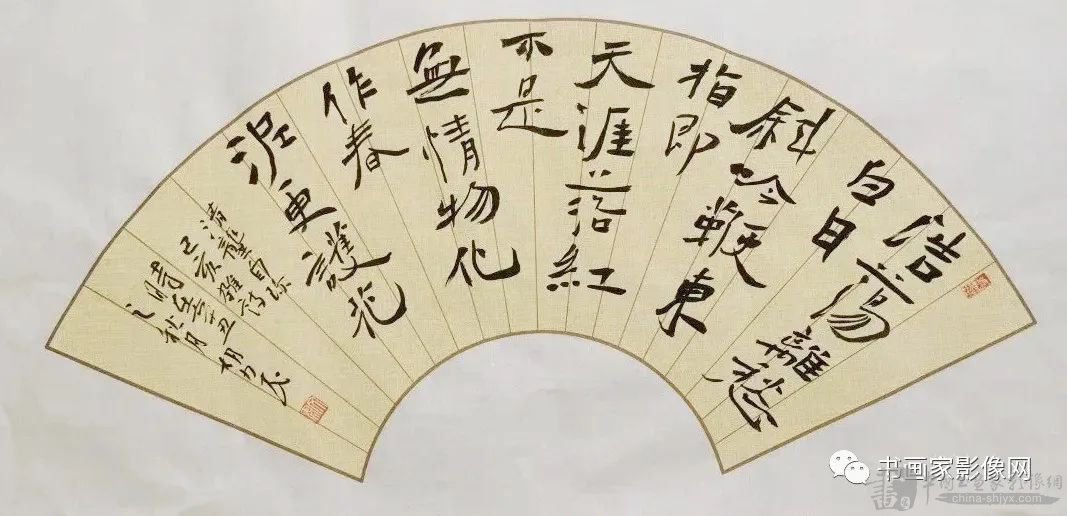 浩蕩離愁
白日
斜吟鞭東
指即
天涯落紅
不是
無情物化
作春
泥更護花
清龔自珍
己亥雜詩
時在辛丑
之秋月
书画家影像网
china-shjyx.com